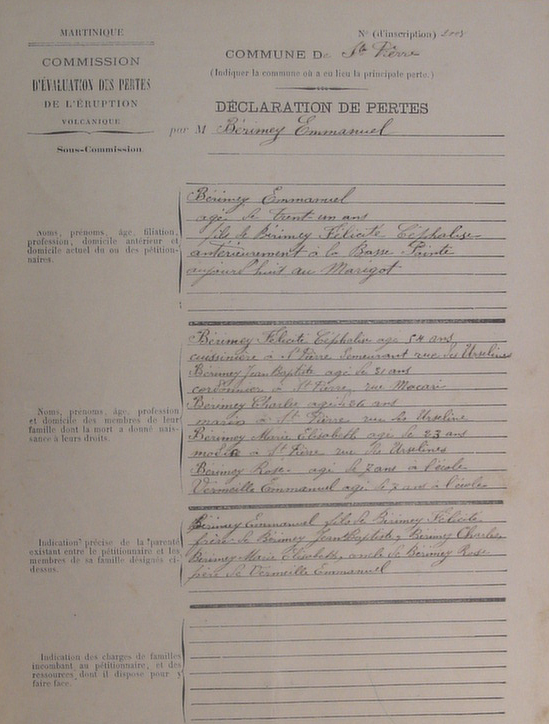 MARTINIQUE
COMMISSION
D'ÉVALUATION DES PERTES
DE L'ÉRUPTION
VOLCANIQUE
Sous-Commission
N° (d'inscription)
COMMUNE De St Pierre
(Indiquer la commune où a eu lieu la principale perte.)
DÉCLARATION DE PERTES
par M Bérimey Emmanuel
Noms, prénoms, âge, filiation,
profession, domicile antérieur et
domicile actuel du ou des pétition-
naires.
Bérimey Emmanuel
agé de trent-un ans
fils de Bérimey Félicité Céphalise
antérieurement à la Basse Pointe
aujourd'huit au Marigot
Noms, prénoms, âge, profession
et domicile des membres de leur
famille dont la mort a donné nais-
sance à leurs droits.
Bérimey Félicité Céphalise age 54 ans
cuissinière à St Pierre demeurant rue des Urselines
Bérimey Jean Baptiste agé de 21 ans
cordonnier à St Pierre, rue
Bérimey Charles agé de 26 ans
marin à St Pierre rue des Urseline
Bérimey Marie Elisabeth age de 23 ans
modiste à St Pierre rue des Urselines
Bérimey Rose agé de 7 ans à l'école
Vermeille Emmanuel agé de 7 ans à l'école
Indication précise de la parenté
existant entre le pétitionnaire et les
membres de sa famille désignés ci-
dessus.
Bérimey Emmanuel fils de Bérimey Félicité
frère de Bérimey Jean Baptiste, Bérimey Charles
Bérimey Marie Elisabeth, oncle de Bérimey Rose
père de Vermeille Emmanuel
Indication des charges de familles
incombant au pétitionnaire, et des
ressources dont il dispose pour y
faire face.